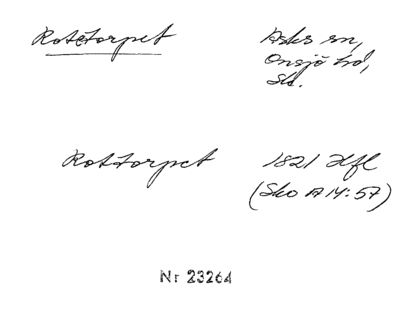 Rotetorpet Asks sn,
Onsjö hd,
Sk.
Rottorpet 1821 Hfl
(Sko A 14:57)
Nr 23264